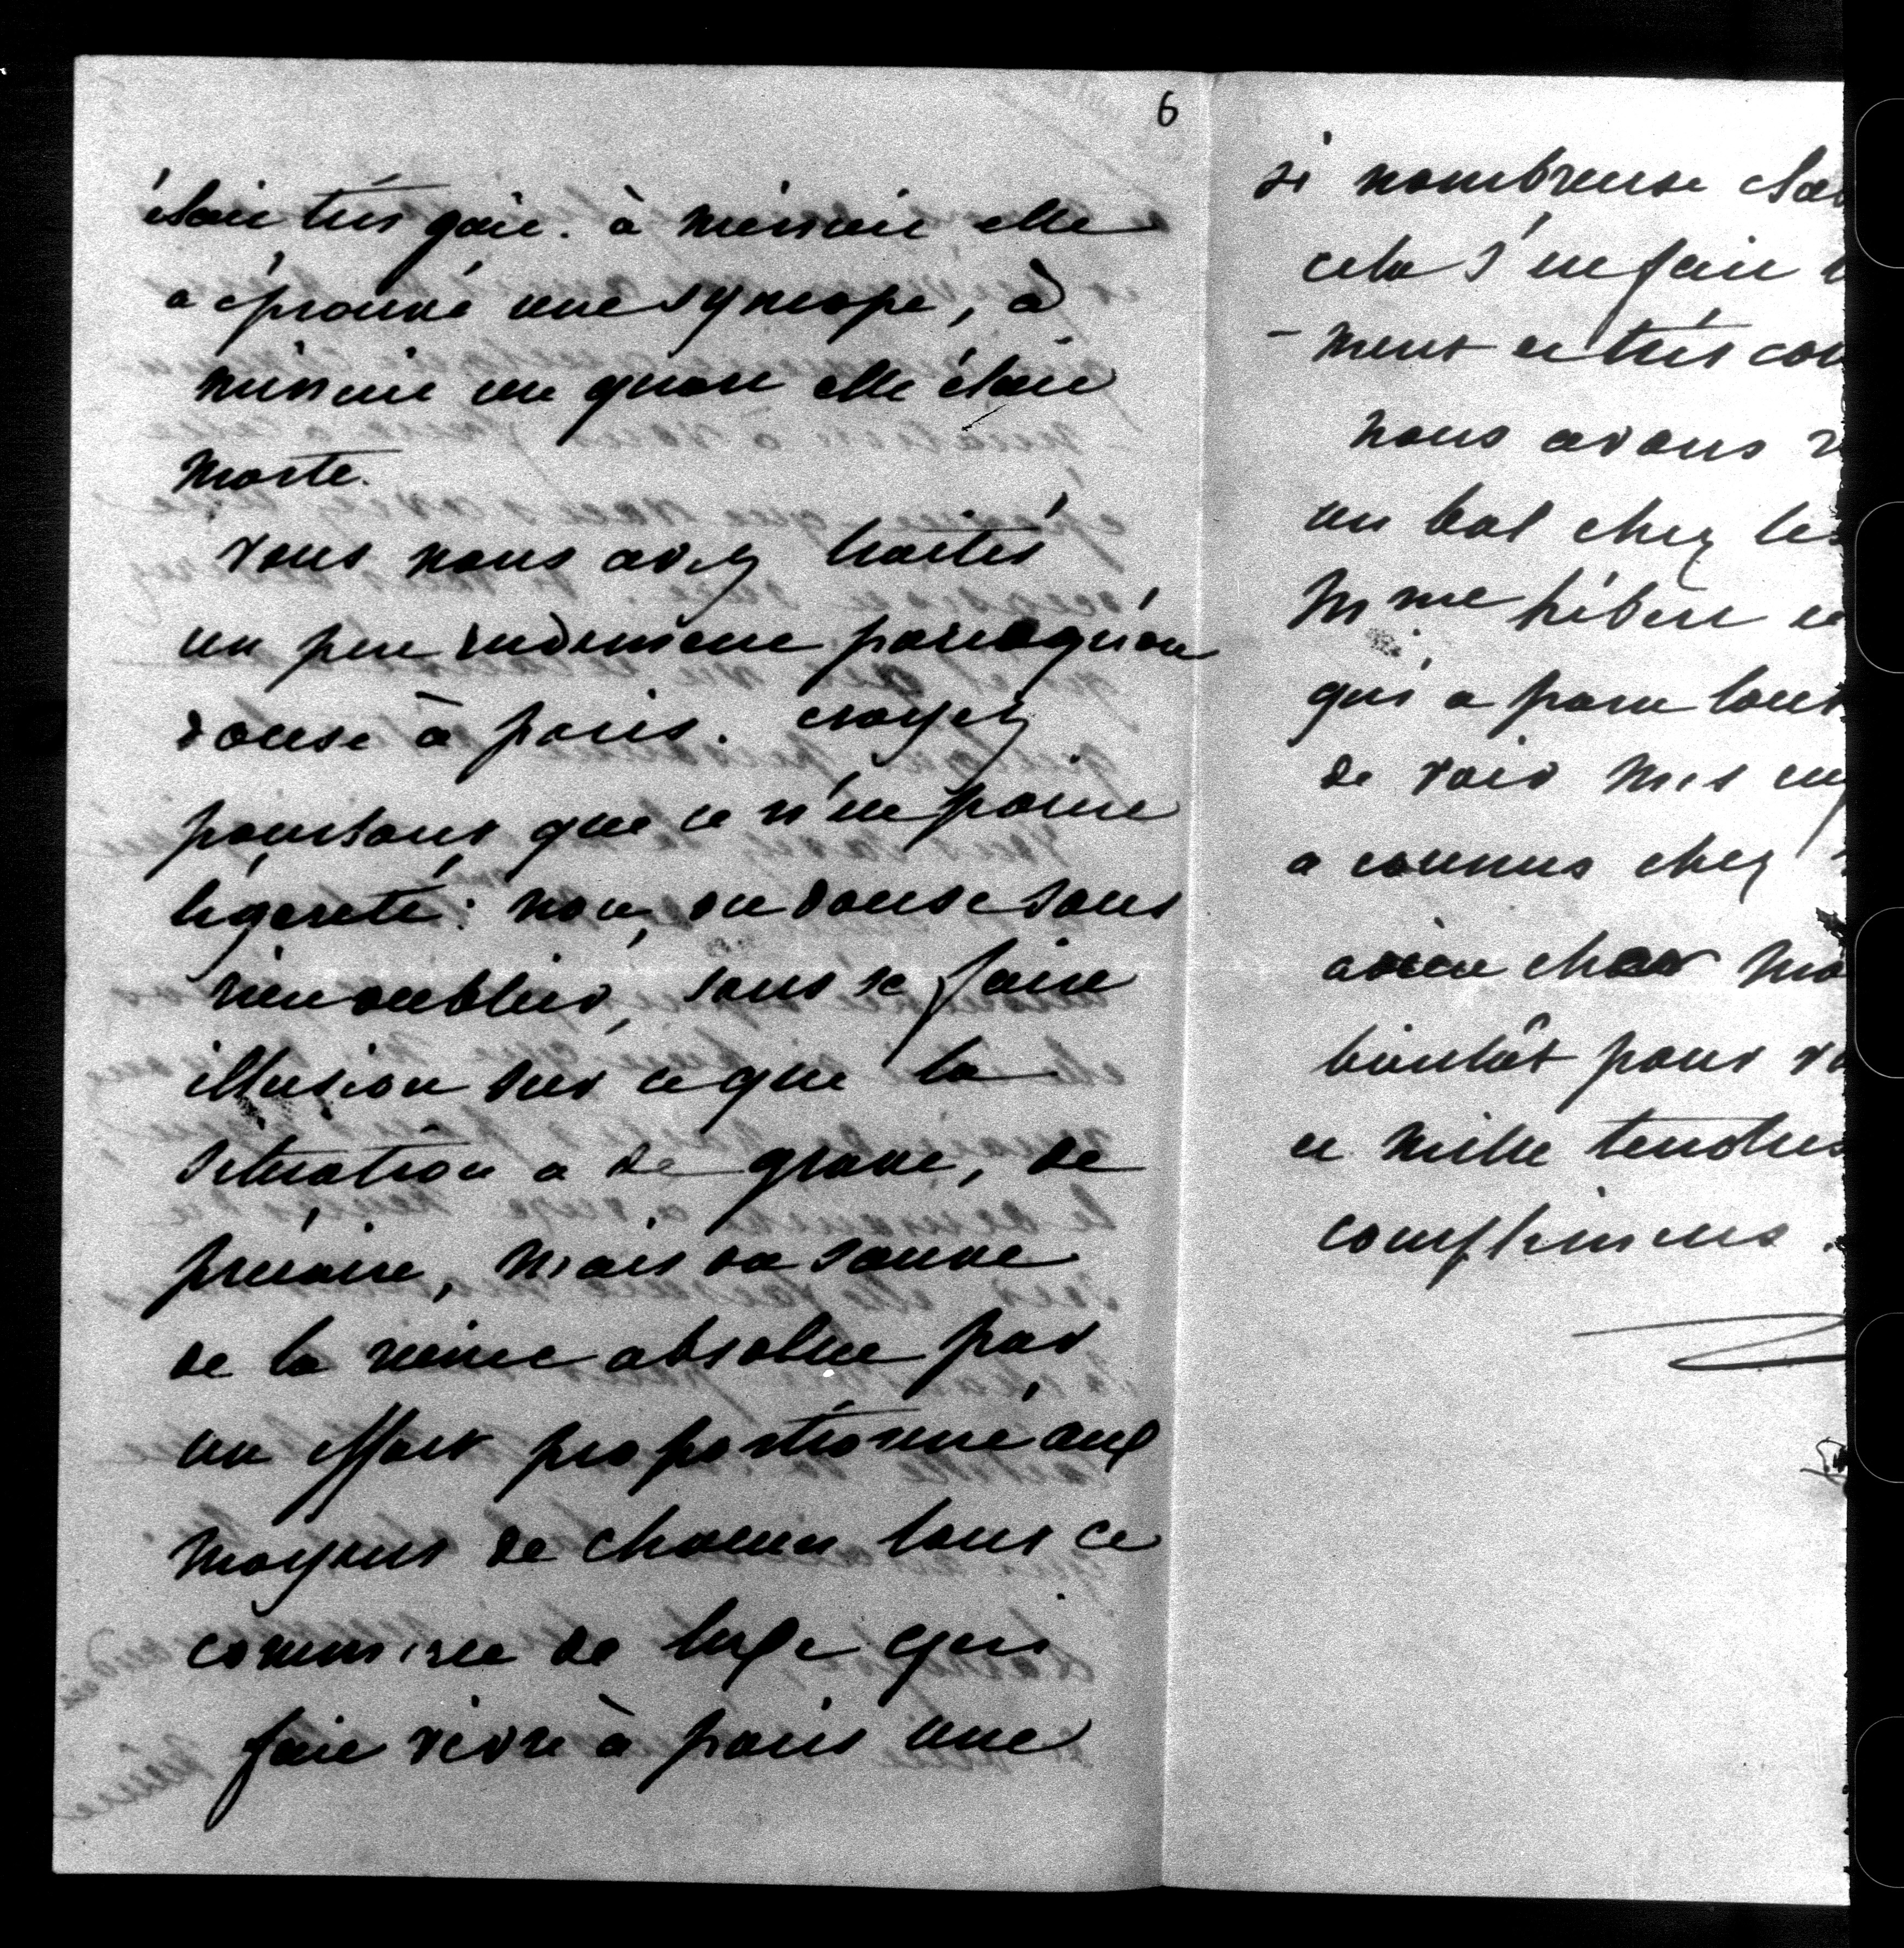 6
était très gaie. à minuit elle
a éprouvé une syncope, à
minuit un quart elle était
morte.
vous nous avez traités
un peu rudement parcequ'on
danse à paris. croyez
pourtant que ce n'est point
légereté: non, on danse sans
rien oublier, sans se faire
illusion sur ce que la
situation a de grave, de
précaire, mais on sauve
de la ruine absolue par
un effort proportionné aux
moyens de chacun tout ce
commerce de luxe qui
fait vivre à paris une
si nombreuse
cela s'en fait
- ment et très
nous avons
un bal chez les
Mme
qui a paru
de voir mes
a connus chez
adieu cher
bientôt pour
et mille tendres
complimens.